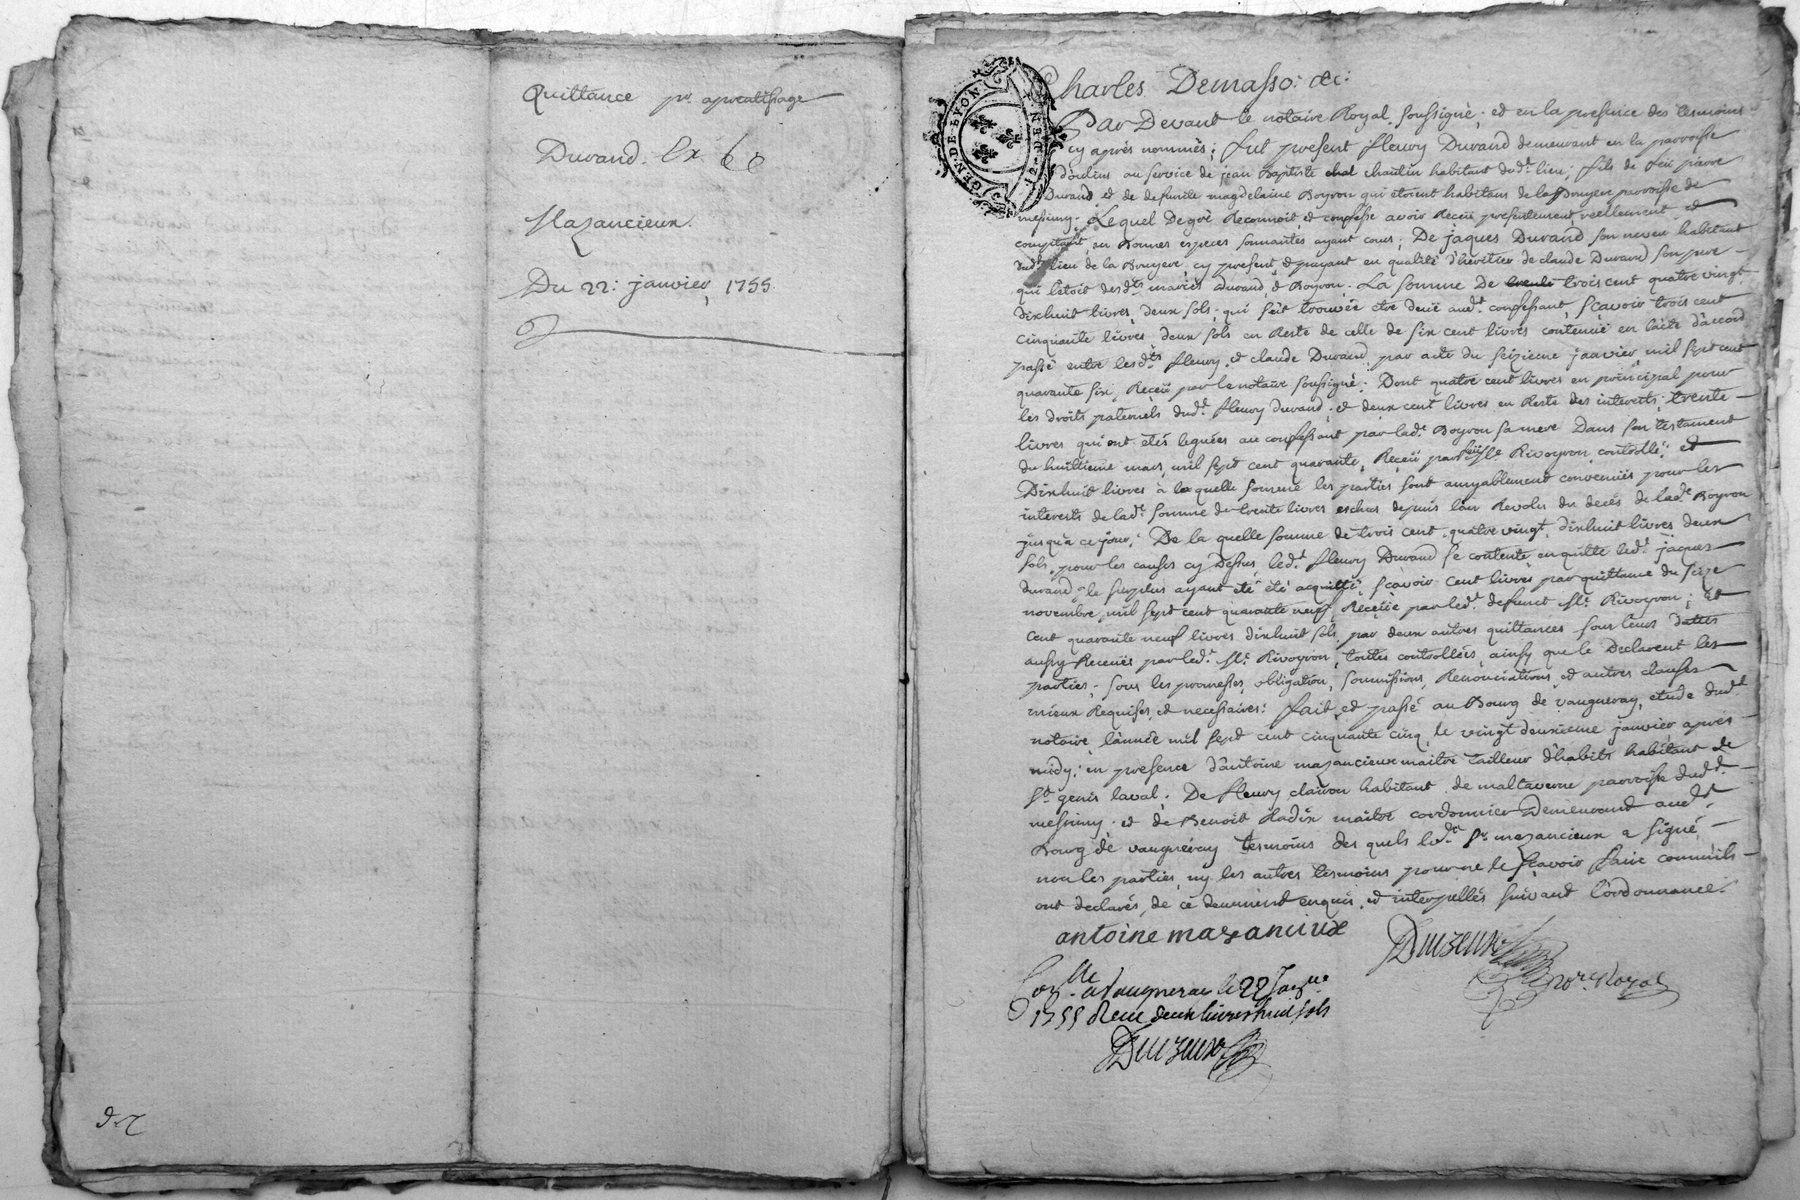 Quittance pr. apretissage
Durand. Ex
Mazancieux.
Du 22: janvier, 1755.
GEN·DE·LYON
Charles Demasso: &c:
Par Devant le notaire Royal soussigné; et en la presence des tesmoins
cy aprés nommés; fut present fleury Durand demeurant en la parroisse
d'oulins au service de jean Baptiste chol habitant dud.t lieu; fils de feu pierre
Durand et de defunte magdelaine Boyron qui étoient habitans de la Bruyere parroisse de
messimy. Lequel De gré Reconnoit et confesse avoir Receü presentement reellement et
comptant, en Bonnes especes sonnantes ayant cours; De jaques Durand son neveu habitant
dud.t lieu de la Bruyere, cy present & payant en qualité d'heritier de claude Durand son pere
qui l'etoit desd.ts mariés Durand, & Boyron. La somme De trois cent quatre vingt
dixhuit livres, deux sols; qui s'est trouvée etre deüe aud.t confessant, scavoir trois cent
cinquante livres, deux sols en Reste de celle de six cent livres contenüe en l'acte d'accord
passé entre lesd.ts fleury, et claude Durand, par acte du seizieme janvier mil sept cent
quarante six, Receü par le notaire soussigné. Dont quatre cent livres en principal pour
les droits paternels dud.t fleury durand; et deux cent livres en Reste des interests; trente
livres qui ont etés leguées au confessant par lad.e Boyron sa mere Dans son testament
du huitieme mars, mil sept cent quarante, Receü par Rivoyron, controllé; et
Dixhuit livres à laquelle somme les parties sont amyablement convenües pour les
interests de lad.e somme de trente livres eschus depuis l'an Revolu du decés de lad.e Boyron
jusqu'a ce jour; De la quelle somme de trois cent, quatre vingt, dixhuit livres deux
sols, pour les causes cy Dessus, led.t fleury Durand se contente, en quitte led.t jaques
durand; le surplus ayant eté eté acquitté, scavoir cent livres par quittance du seize
novembre, mil sept cent quarante neuf, Receüe par led.t defunct M.e Rivoyron; Et
cent quarante neuf livres dixhuit sols, par deux autres quittances sous leurs dattes
aussy Receües par led.t M.e Rivoyron, toutes controllées, ainsy que le Declarent les
parties; sous les promesses, obligation, soumissions, Renonciations, et autres clauses
mieux Requises, et necessaires: fait, et passé au Bourg de vaugneray, etude dud.t
notaire, l'année mil sept cent cinquante cinq, le vingt deuxieme janvier, aprés
midy; en presence d'antoine mazancieux maitre tailleur d'habits habitant de
S.t genis laval. De fleury clairon habitant de maltaverne parroisse dud.t
messimy. et de Benoit Hadin maitre cordonnier Demeurant aud.t
Bourg de vaugneray tesmoins des quels led.t S.r mazancieux a signé
non les parties, ny les autres tesmoins pour ne le scavoir faire comm'ils
ont declarés, de ce deuement enquis, et interpellés suivant l'ordonnance.
antoine mazancieux
Duizeux
No.re Royal
Con.lle a Vaugneray le 22 Janv.er
1755 Receu deux livres huit sols
Duizeux